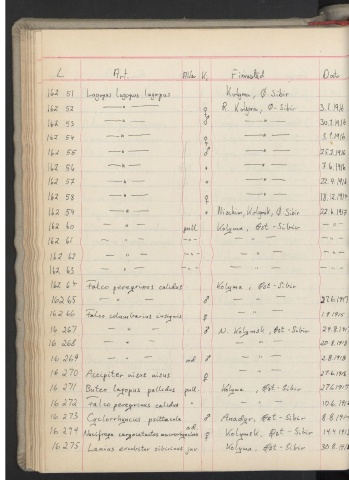 L. Art. Alder K. Finnested Dato
162 51 Lagopus lagopus lagopus Kolyma, Ø Sibir
162 52 — " — ♀ R. Kolyma, Ø-Sibir 3.1.1916
162 53 — " — ♂ — " — 30.1.1916
162 54 — " — ♀ — " —
162 55 — " — ♂ — " — 25.2.1916
162 56 — " — " — " — 7.6.1916
162 57 — " — " — " — 22.4.1916
162 58 — " — ♀ — " — 18.12.1916
162 59 — " — " Nischni, Kolymsk, Ø Sibir 22.6.1917
162 60 — " — pull Kolyma, Øst-Sibir — " —
162 61 — " — — " — — " — — " —
162 62 — " — — " — — " — — " —
162 63 — " — — " — — " — — " —
162 64 Falco peregrinus calidus Kolyma, Øst-Sibir
162 65 — " — ♂ — " — 27.6.1917
162 66 Falco columbarius insignis ♀ — " — 1.9.1915
16 267 — " — ♂ N. Kolymsk, Øst-Sibir 29.8.1917
16 268 — " — — " — 20.8.1918
16 269 — " — ad. ♂ — " — 2.8.1918
16 270 Accipiter nisus nisus ♀ — " — 27.6.1918
16 271 Buteo lagopus pallidus pull. Kolyma, Øst-Sibir 27.6.1917
16 272 Falco peregrinus calidus " — " — 10.6.191
16 273 Cyclorhynchus psittacula ♂ Anadyr, Øst-Sibir 8.8.191
16 274 Nucifraga caryocatactes macrorhynchus ad. ♀ Kolymsk, Øst-Sibir 14.4.191
16 275 Lanius excubitor sibiricus juv. Kolyma, Øst-Sibir 30.8.191